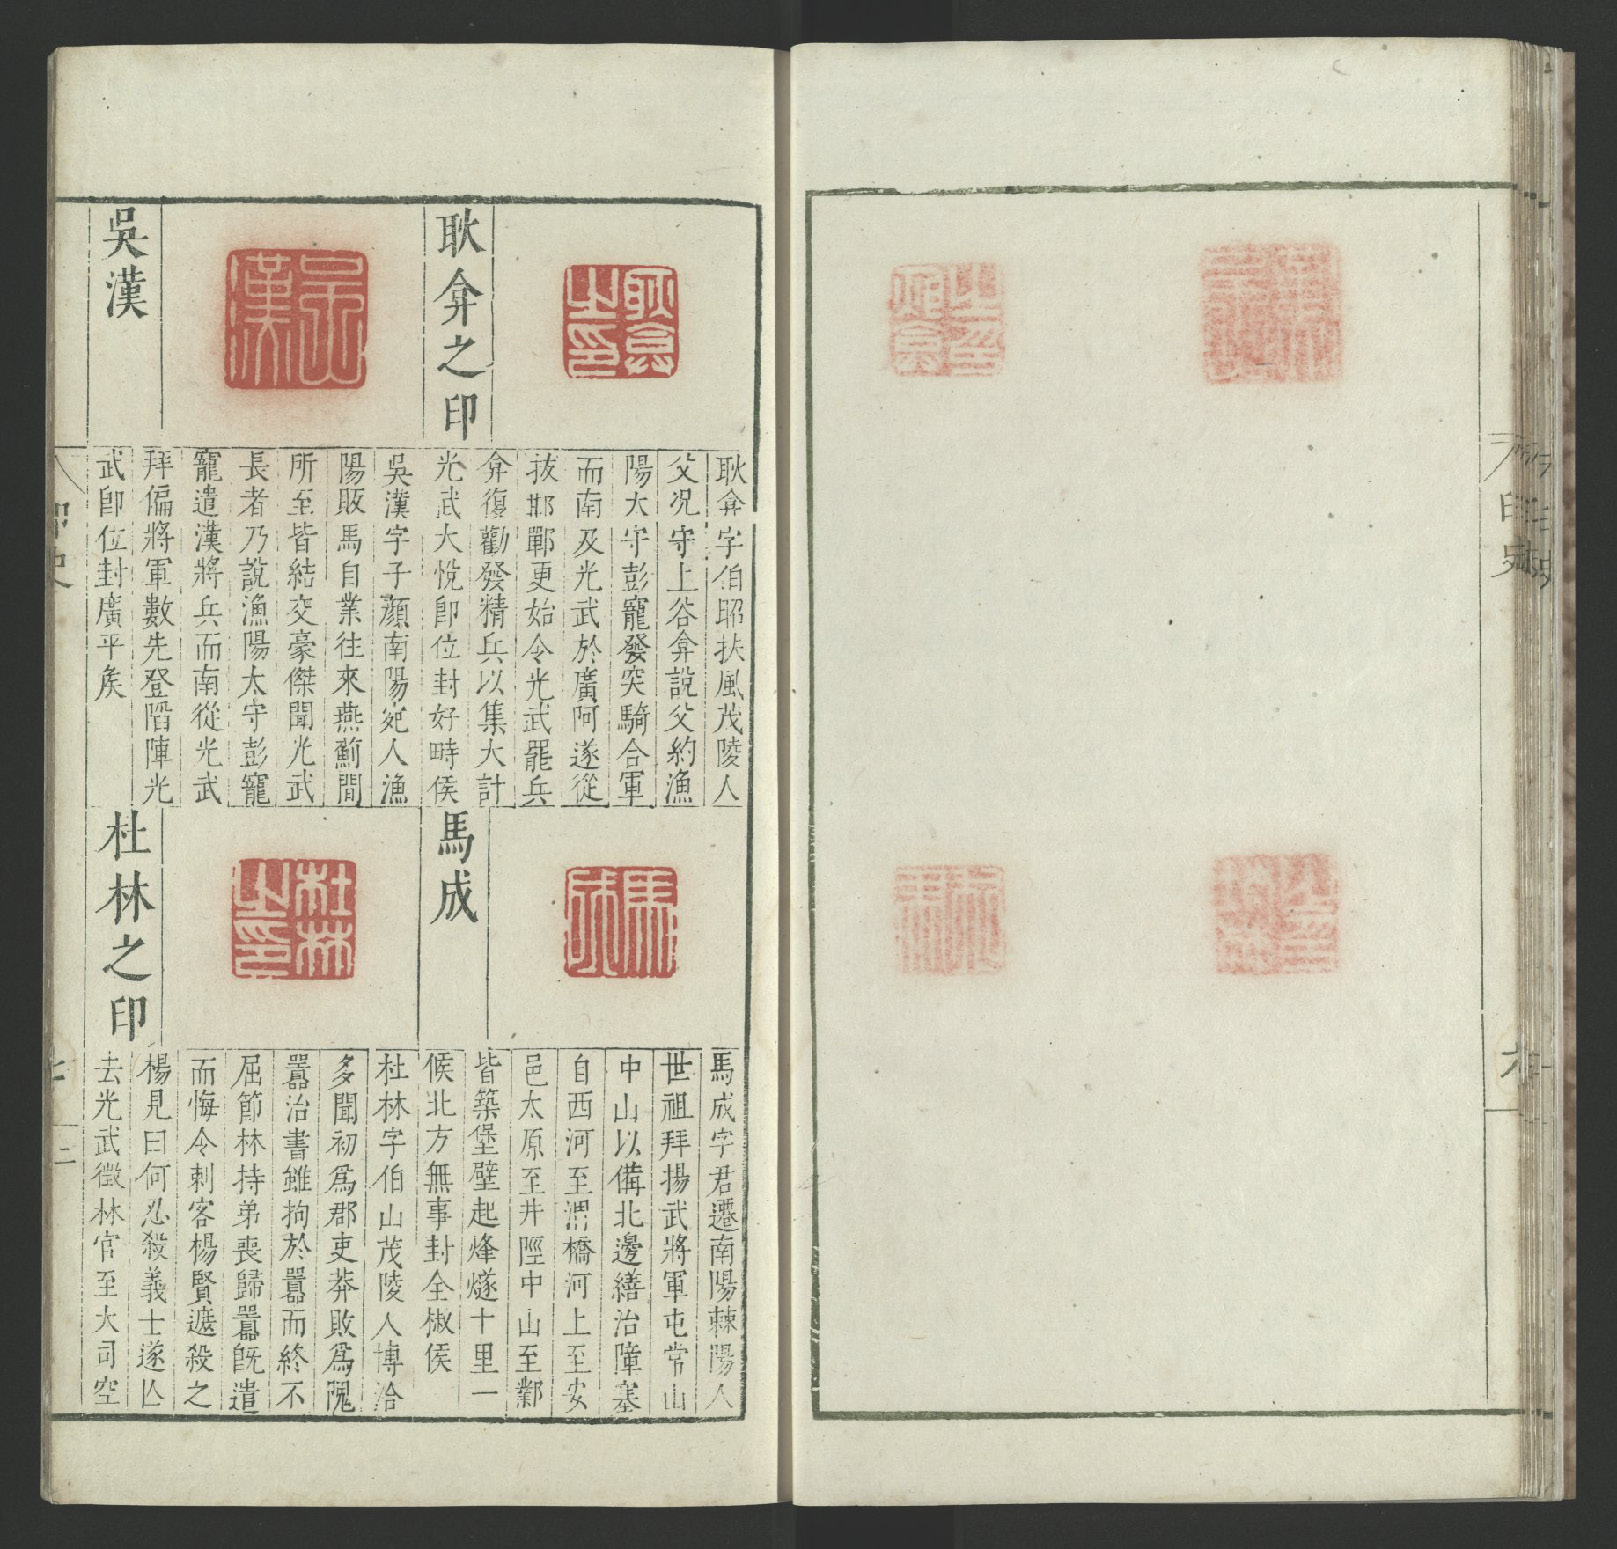 耿弇之印
耿弇字伯昭扶風茂陵人
父况守上谷弇説父約漁
陽太守彭寵發突騎合軍
而南及光武於廣阿遂從
拔邯鄲更始令光武罷兵
弇復勸發精兵以集大計
光武大悅卽位封好畤侯
吳漢
吳漢字子顏南陽宛人漁
陽販馬自業往來燕薊間
所至皆結交豪傑聞光武
長者乃說漁陽太守彭寵
寵遣漢將兵而南從光武
拜偏將軍數先登䧟陣光
武卽位封廣平矦
馬成
馬成字君遷南陽棘陽人
世祖拜揚武將軍屯常山
中山以備北邊繕治障塞
自西河至渭橋河上至安
邑太原至井陘中山至鄴
皆築堡壁起烽燧十里一
候北方無事封全椒侯
杜林之印
杜林字伯山茂陵人博洽
多聞初爲郡吏莽敗爲隗
囂治書雖拘於囂而終不
屈節林持弟喪歸囂旣遣
而悔令刺客楊賢遮殺之
楊見曰何忍殺義士遂亾
去光武徵林官至大司空
印史